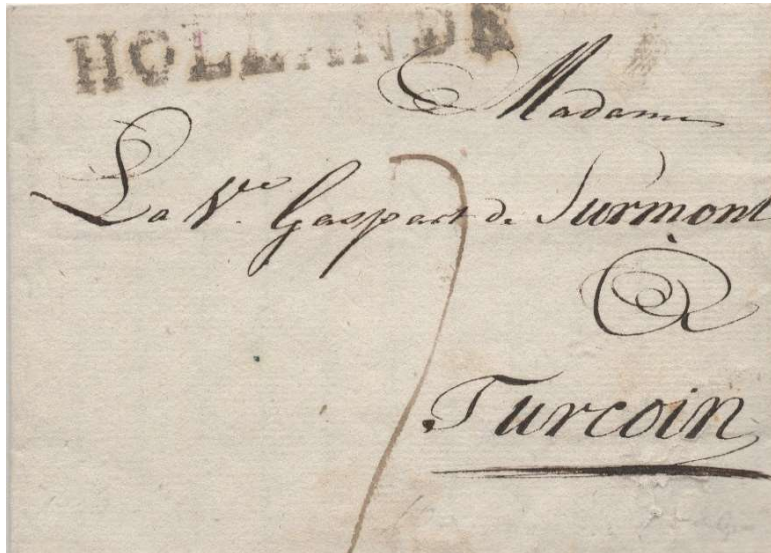 HOLLANDE
Madame
La Ve. Gaspart de Surmont
7
à
Turcoin